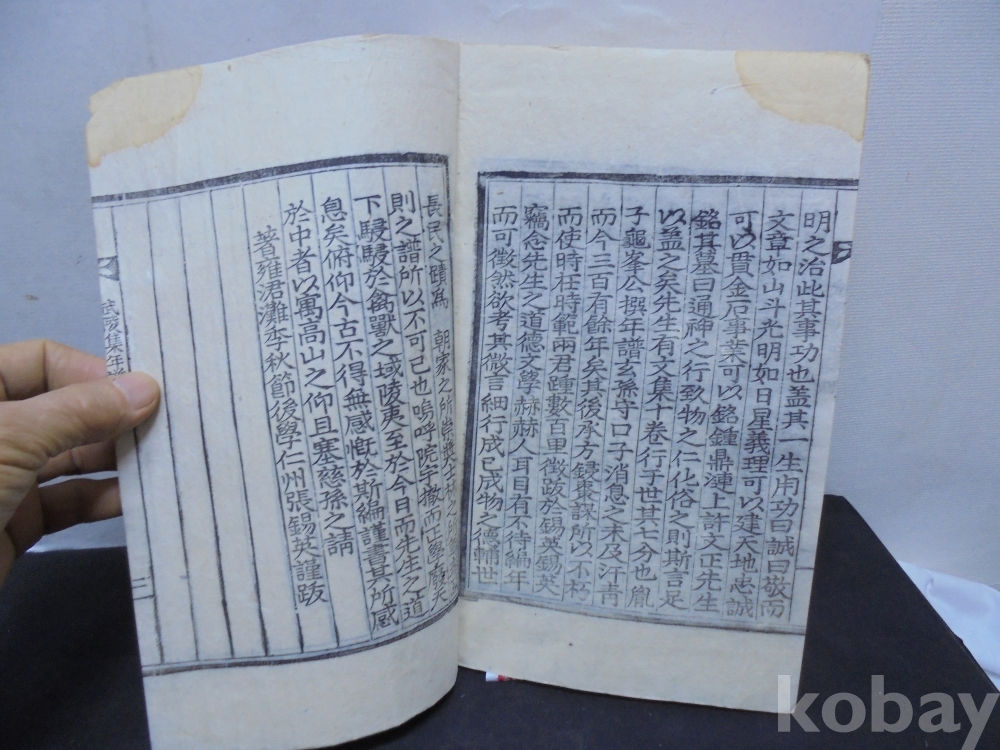 明之治此其事功也盖其一生用功曰誠曰敬而
文章如山斗光明如日星義理可以建天地忠誠
可以貫金石事業可以銘鍾鼎漣上許文正先生
銘其墓曰通神之行致物之仁化俗之則斯言足
以盖之矣先生有文集十卷行于世其七分也胤
子龜峯公撰年譜玄孫守口子消息之未及汗青
而今三百有餘年矣其後承方錄東謀所以不朽
而使時在時範兩君踵數百里徵跋於錫英錫英
竊念先生之道德文學赫赫人耳目有不待編年
而可徵然欲考其微言細行成己成物之德輔世
長民之蹟爲 朝家之所崇奬士林之所
則之譜所以不可已也嗚呼院宇撤而正學廢天
下駸駸於禽獸之域陵夷至於今日而先生之道
息矣俯仰今古不得無感慨於斯編謹書其所感
於中者以寓高山之仰且塞慈孫之請
著雍涒灘季秋節後學仁州張錫英謹跋
武陵集年譜
kobay